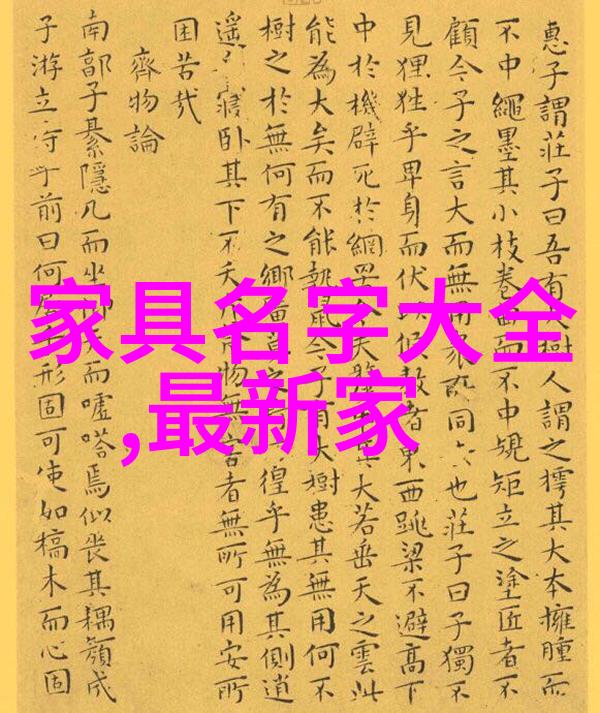 家具名字大全
,最新家
惠子謂莊子曰吾有樹人謂之樗其大本擁腫而
不中繩墨其小枝卷曲而不中規矩立之塗匠者不
顧今子之言大而無用衆所同也莊子曰子獨不
見狸狌乎卑身而伏以候敖者東西跳梁不避高下
中於機辟死於網罟今夫其大若垂天之雲此
能為大矣而不能執鼠今子有大樹患其無用何不
樹之於無何有之鄉廣莫之徨乎無為其側逍
遙寢卧其下不夭斤物無害者無所可用安所
困苦哉
齊物論
南郭子綦隱几而坐仰天而噓嗒焉似喪其耦顏成
子游立侍乎前曰何居乎形固可使如槁木而心固